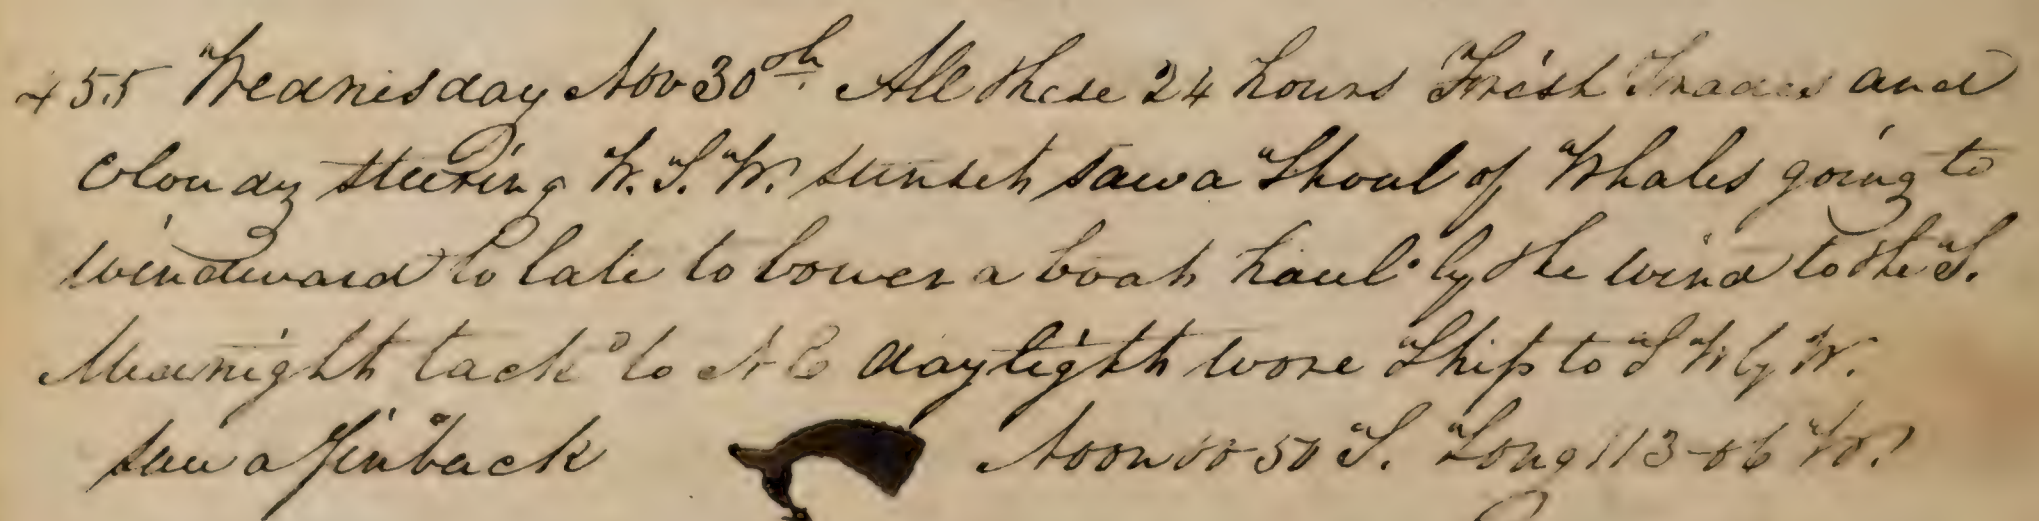 455 Wednisday Nov 30th. All these 24 hours Fresh Trades and
Cloudy steering W.S.W. sunset saw a Shoal of Whales going to
windward to late to lower a boat haul by the wind to the S.
Midnight tack to N E daylight wore Ship to S W by W.
saw a finback Noon 00-50 S. Long 113-06 W.